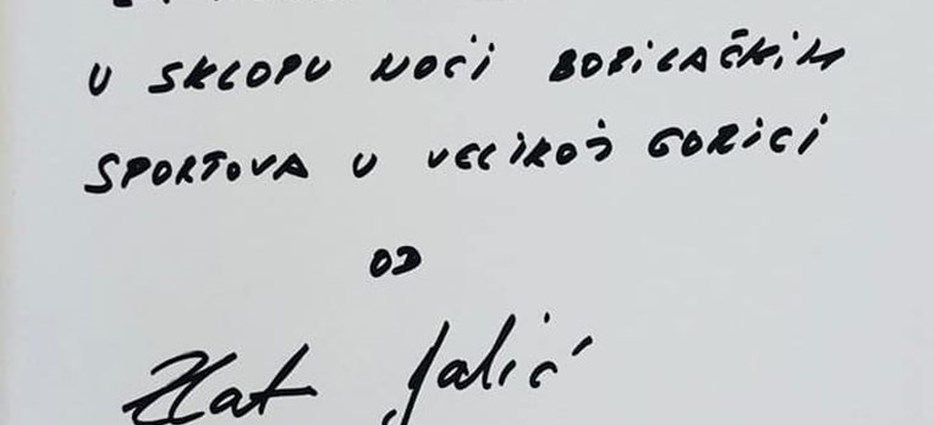 U SKLOPU NOĆI BORILAČKIH
SPORTOVA U VELIKOJ GORICI
OD
Zlat Jalić